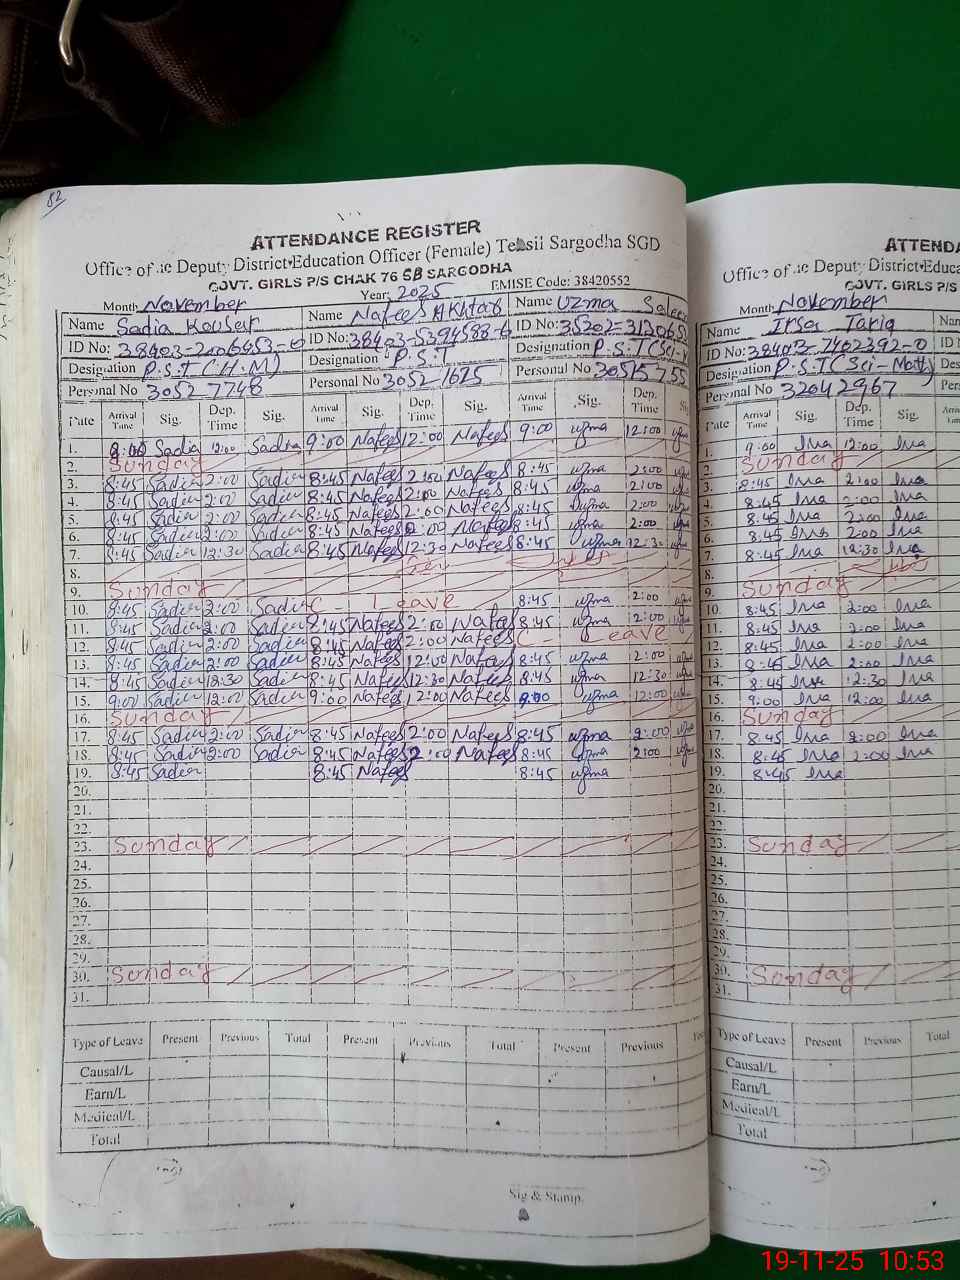 82
ATTENDANCE REGISTER
Office of Deputy District Education Officer (Female) Tehsil Sargodha SGD
GOVT. GIRLS P/S CHAK 76 SB SARGODHA
EMISE Code: 38420552
Month November Year 2025
Name Sadia Kouser Name Nafees Akhtar Name Uzma Saleem
ID No: 38403-2006453-0 ID No: 38403-5394588-6 ID No: 35202-3130651
Designation P.S.T (H.M) Designation P.S.T Designation P.S.T (Sci-
Personal No 3052 7748 Personal No 3052-1675 Personal No 30515755
Date Arrival Time Sig. Dep. Time Sig. Arrival Time Sig. Dep. Time Sig. Arrival Time Sig. Dep. Time Sig.
1. 9:00 Sadia 12:00 Sadia 9:00 Nafees 12:00 Nafees 9:00 uzma 12:00 uzma
2. Sunday
3. 8:45 Sadia 2:00 Sadia 8:45 Nafees 2:00 Nafees 8:45 uzma 2:00 uzma
4. 8:45 Sadia 2:00 Sadia 8:45 Nafees 2:00 Nafees 8:45 uzma 2:00 uzma
5. 8:45 Sadia 2:00 Sadia 8:45 Nafees 2:00 Nafees 8:45 uzma 2:00 uzma
6. 8:45 Sadia 2:00 Sadia 8:45 Nafees 2:00 Nafees 8:45 uzma 2:00 uzma
7. 8:45 Sadia 12:30 Sadia 8:45 Nafees 12:30 Nafees 8:45 uzma 12:30 uzma
8.
9. Sunday
10. 8:45 Sadia 2:00 Sadia C - Leave 8:45 uzma 2:00 uzma
11. 8:45 Sadia 2:00 Sadia 8:45 Nafees 2:00 Nafees 8:45 uzma 2:00 uzma
12. 8:45 Sadia 2:00 Sadia 8:45 Nafees 2:00 Nafees C - Leave
13. 8:45 Sadia 2:00 Sadia 8:45 Nafees 12:00 Nafees 8:45 uzma 2:00 uzma
14. 8:45 Sadia 12:30 Sadia 8:45 Nafees 12:30 Nafees 8:45 uzma 12:30 uzma
15. 9:00 Sadia 12:00 Sadia 9:00 Nafees 12:00 Nafees 9:00 uzma 12:00 uzma
16. Sunday
17. 8:45 Sadia 2:00 Sadia 8:45 Nafees 2:00 Nafees 8:45 uzma 2:00 uzma
18. 8:45 Sadia 2:00 Sadia 8:45 Nafees 2:00 Nafees 8:45 uzma 2:00 uzma
19. 8:45 Sadia 8:45 Nafees 8:45 uzma
20.
21.
22.
23. Sunday
24.
25.
26.
27.
28.
29.
30. Sunday
31.
Type of Leave Present Previous Total Present Previous Total Present Previous
Causal/L
Earn/L
Medical/L
Total
Sig & Stamp.
ATTENDA
Office of Deputy District Educa
GOVT. GIRLS P/S
Month November
Name Irsa Tariq Nan
ID No: 38403-7402392-0 ID N
Designation P.S.T (Sci-Math) Des
Personal No 32042967 Perso
Date Arrival Time Sig. Dep. Time Sig.
1. 9:00 Irsa 12:00 Irsa
2. Sunday
3. 8:45 Irsa 2:00 Irsa
4. 8:45 Irsa 2:00 Irsa
5. 8:45 Irsa 2:00 Irsa
6. 8:45 Irsa 2:00 Irsa
7. 8:45 Irsa 12:30 Irsa
8.
9. Sunday
10. 8:45 Irsa 2:00 Irsa
11. 8:45 Irsa 2:00 Irsa
12. 8:45 Irsa 2:00 Irsa
13. 8:45 Irsa 2:00 Irsa
14. 8:45 Irsa 12:30 Irsa
15. 9:00 Irsa 12:00 Irsa
16. Sunday
17. 8:45 Irsa 2:00 Irsa
18. 8:45 Irsa 2:00 Irsa
19. 8:45 Irsa
20.
21.
22.
23. Sunday
24.
25.
26.
27.
28.
29.
30. Sunday
31.
Type of Leave Present Previous Total
Causal/L
Earn/L
Medical/L
Total
19-11-25 10:53